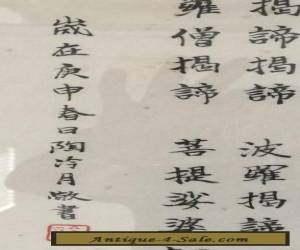 揭諦揭諦 波羅揭諦
羅僧揭諦 菩提娑婆
歲在庚申春日陶冷月敬書
Antique-4-Sale.com